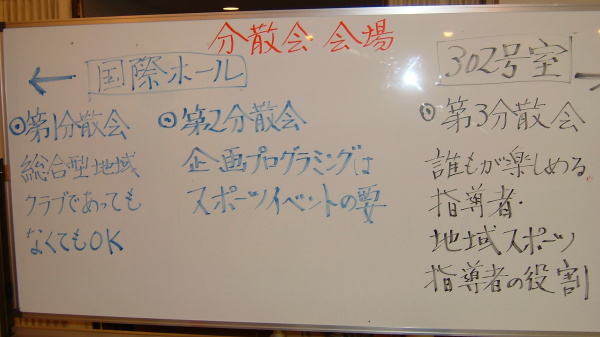 分散会 会場
← 国際ホール
302号室 →
◎第1分散会
総合型地域
クラブであっても
なくてもOK
◎第2分散会
企画プログラミングは
スポーツイベントの要
◎第3分散会
誰もが楽しめる
指導者・
地域スポーツ
指導者の役割